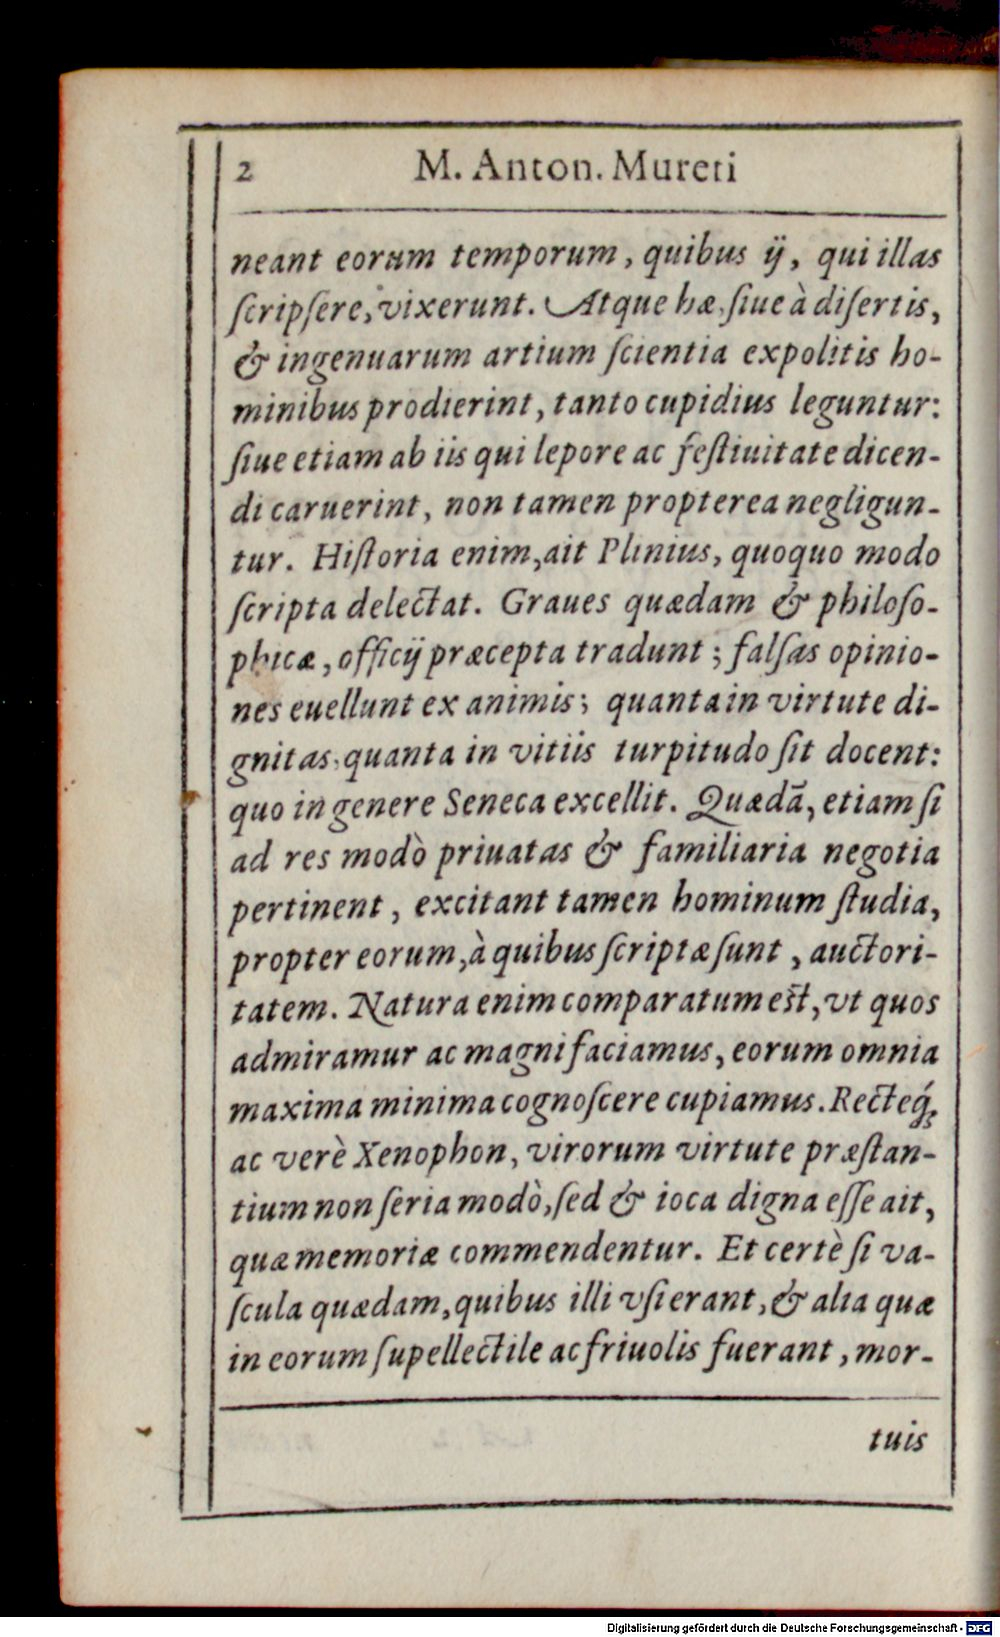 2 M. Anton. Mureti
neant eorum temporum, quibus ij, qui illas
ſcripſere, vixerunt. Atque hæ, ſiue à diſertis,
& ingenuarum artium ſcientia expolitis ho-
minibus prodierint, tanto cupidius leguntur:
ſiue etiam ab iis qui lepore ac feſtiuitate dicen-
di caruerint, non tamen propterea negligun-
tur. Hiſtoria enim, ait Plinius, quoquo modo
ſcripta delectat. Graues quædam & philoſo-
phicæ, officij præcepta tradunt; falſas opinio-
nes euellunt ex animis; quanta in virtute di-
gnitas, quanta in vitiis turpitudo ſit docent:
quo in genere Seneca excellit. Quædã, etiam ſi
ad res modò priuatas & familiaria negotia
pertinent, excitant tamen hominum ſtudia,
propter eorum, à quibus ſcriptæ ſunt, auctori-
tatem. Natura enim comparatum eſt, vt quos
admiramur ac magni faciamus, eorum omnia
maxima minima cognoſcere cupiamus. Recteq́;
ac verè Xenophon, virorum virtute præſtan-
tium non ſeria modò, ſed & ioca digna eſſe ait,
quæ memoriæ commendentur. Et certè ſi va-
ſcula quædam, quibus illi vſi erant, & alia quæ
in eorum ſupellectile ac friuolis fuerant, mor-
tuis
Digitalisierung gefördert durch die Deutsche Forschungsgemeinschaft - DFG